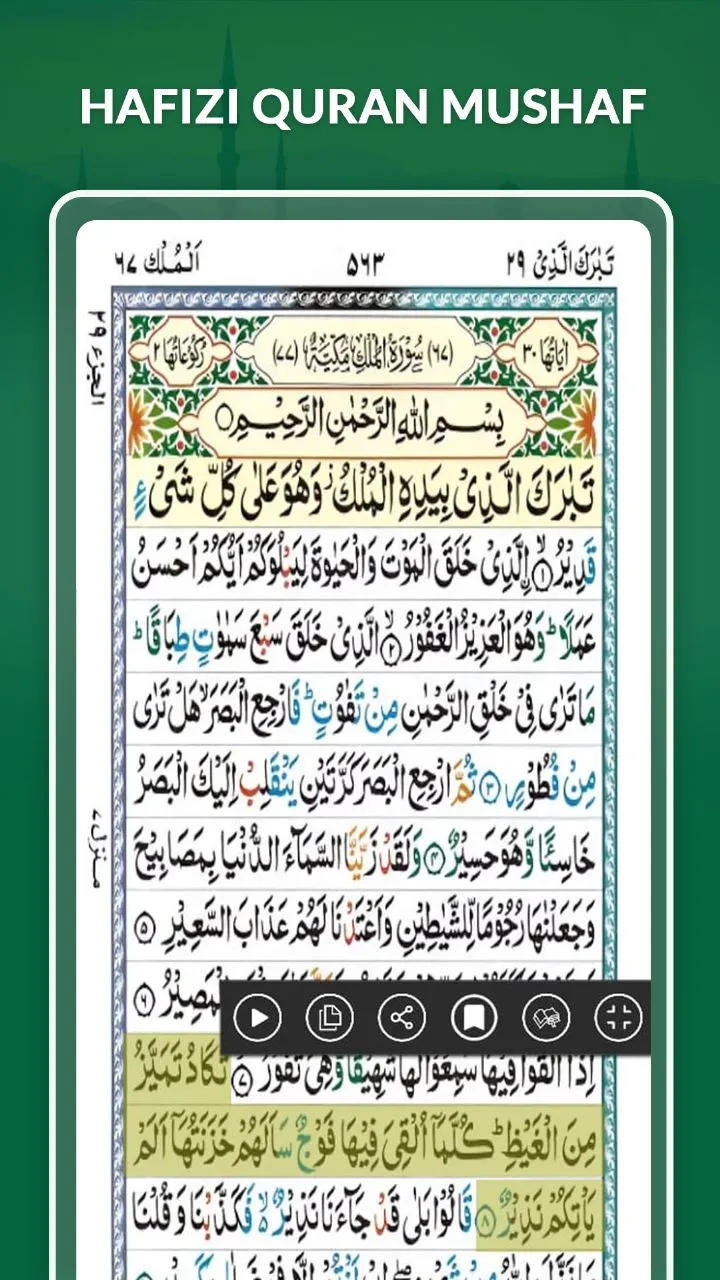 HAFIZI QURAN MUSHAF
تَبٰرَكَ الَّذِیْ ۲۹
۵۶۳
اَلْمُلْك ۶۷
الجزء ۲۹
اٰيَاتُهَا ۳۰
(۶۷) سُوْرَةُ الْمُلْكِ مَكِّيَّةٌ (۷۷)
رُكُوْعَاتُهَا ۲
بِسْمِ اللّٰهِ الرَّحْمٰنِ الرَّحِيْمِ
تَبٰرَكَ الَّذِیْ بِیَدِهِ الْمُلْكُ ؗ وَهُوَ عَلٰی كُلِّ شَیْءٍ
قَدِیْرُ ۙ۝۱ اِ۟لَّذِیْ خَلَقَ الْمَوْتَ وَالْحَیٰوةَ لِیَبْلُوَكُمْ اَیُّكُمْ اَحْسَنُ
عَمَلًا ؕ وَهُوَ الْعَزِیْزُ الْغَفُوْرُ ۙ۝۲ الَّذِیْ خَلَقَ سَبْعَ سَمٰوٰتٍ طِبَاقًا ؕ
مَا تَرٰی فِیْ خَلْقِ الرَّحْمٰنِ مِنْ تَفٰوُتٍ ؕ فَارْجِعِ الْبَصَرَ ۙ هَلْ تَرٰی
مِنْ فُطُوْرٍ ۝۳ ثُمَّ ارْجِعِ الْبَصَرَ كَرَّتَیْنِ یَنْقَلِبْ اِلَیْكَ الْبَصَرُ
خَاسِئًا وَّهُوَ حَسِیْرٌ ۝۴ وَلَقَدْ زَیَّنَّا السَّمَآءَ الدُّنْیَا بِمَصَابِیْحَ
منزل ۷
وَجَعَلْنٰهَا رُجُوْمًا لِّلشَّیٰطِیْنِ وَاَعْتَدْنَا لَهُمْ عَذَابَ السَّعِیْرِ ۝۵
الْمَصِیْرُ ۝۶
اِذَاۤ اُلْقُوْا فِیْهَا سَمِعُوْا لَهَا شَهِیْقًا وَّهِیَ تَفُوْرُ ۙ۝۷ تَكَادُ تَمَیَّزُ
مِنَ الْغَیْظِ ؕ كُلَّمَاۤ اُلْقِیَ فِیْهَا فَوْجٌ سَاَلَهُمْ خَزَنَتُهَاۤ اَلَمْ
یَاْتِكُمْ نَذِیْرٌ ۝۸ قَالُوْا بَلٰی قَدْ جَآءَنَا نَذِیْرٌ ۙ۬ فَكَذَّبْنَا وَقُلْنَا